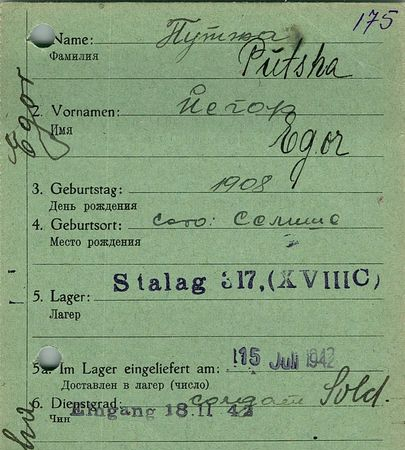 175
Name: Путжа
Фамилия
Putska
2. Vornamen: Йегор
Имя
Egor
Egor
3. Geburtstag: 1908
День рождения
4. Geburtsort: село: Селище
Место рождения
5. Lager: Stalag 317,(XVIIIC)
Лагер
5a. Im Lager eingeliefert am: 15 Juli 1942
Доставлен в лагер (число)
6. Dienstgrad: солдат Sold.
Чин Eingang 18.11 42